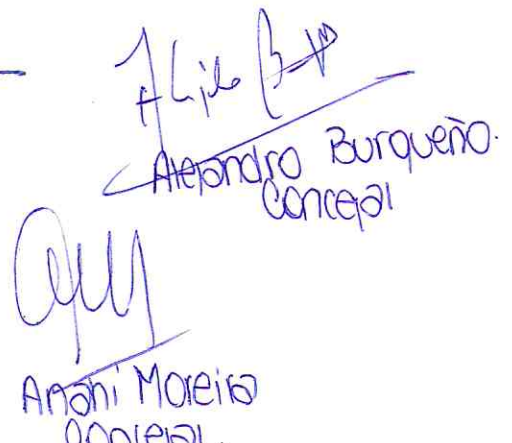 Alejandro Burqueño.
Concejal
Anahi Moreira
Concejal.